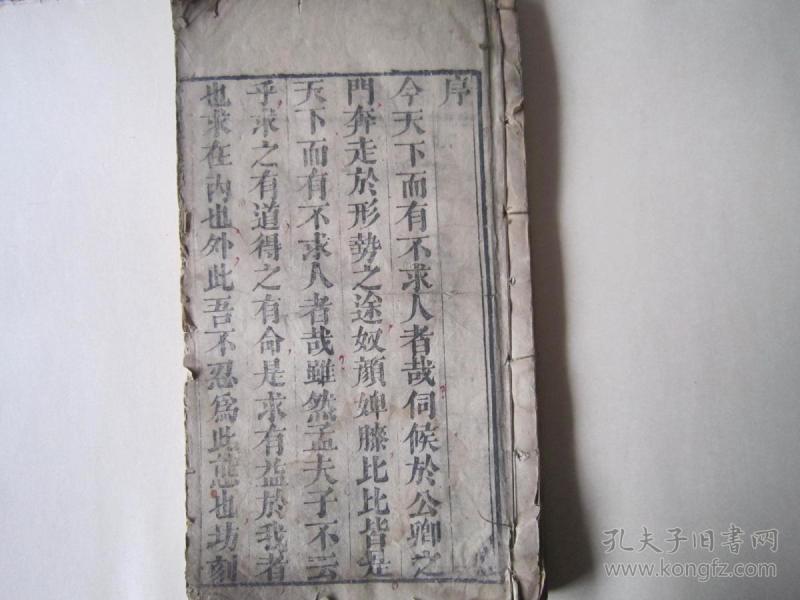 序
今天下而有不求人者哉伺候於公卿之
門奔走於形勢之途奴顔婢膝比比皆是
天下而有不求人者哉雖然孟夫子不云
乎求之有道得之有命是求有益於我者
也求在內也外此吾不忍為此態也坊刻
孔夫子旧书网
www.kongfz.com